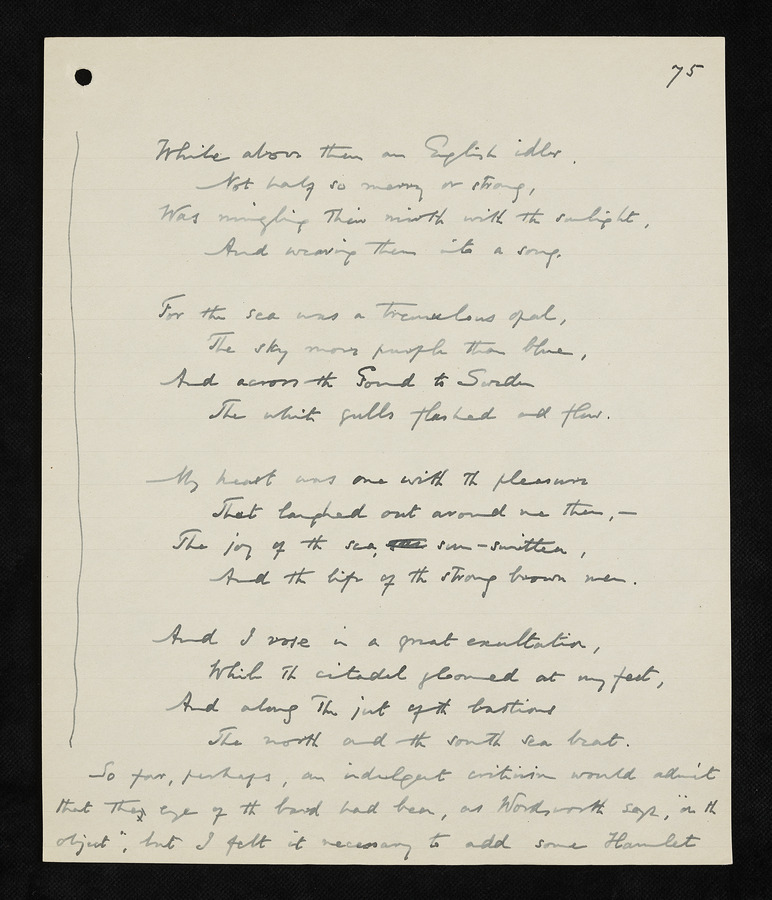 75
While above them an English idler,
Not half so merry or strong,
Was mingling their mirth with the sunlight,
And weaving them into a song.
For the sea was a tremulous opal,
The sky more purple than blue,
And across the Sound to Sweden
The white gulls flashed and flew.
My heart was one with the pleasure
That laughed out around me then,—
The joy of the sea, sun-smitten,
And the life of the strong brown men.
And I rose in a great exultation,
While the citadel gloomed at my feet,
And along the jut of the bastions
The north and the south sea beat.
So far, perhaps, an indulgent criticism would admit
that the eye of the bard had been, as Wordsworth says, "on the
object", but I felt it necessary to add some Hamlet